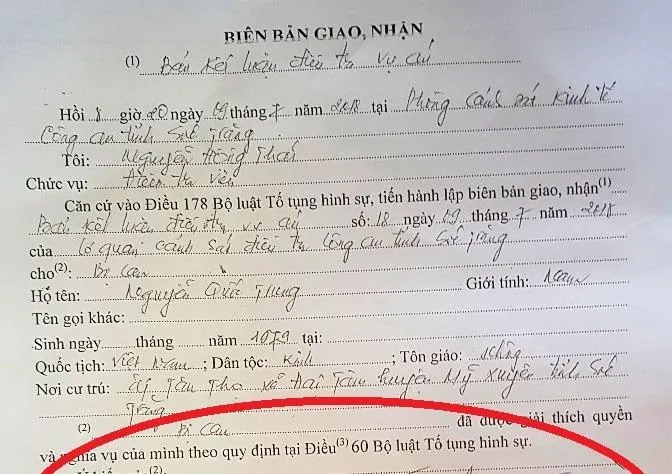 BIÊN BẢN GIAO, NHẬN
(1) Bản kết luận điều tra vụ án
Hồi 8 giờ 20 ngày 19 tháng 7 năm 2018 tại Phòng cảnh sát kinh tế
Công an tỉnh Sóc Trăng
Tôi: Nguyễn Hồng Thái
Chức vụ: Điều tra viên
Căn cứ vào Điều 178 Bộ luật Tố tụng hình sự, tiến hành lập biên bản giao, nhận(1)
Bản kết luận điều tra vụ án số: 18 ngày 19 tháng 7 năm 2018
của cơ quan cảnh sát điều tra Công an tỉnh Sóc Trăng
cho(2): Bị can
Họ tên: Nguyễn Quốc Giới tính: Nam
Tên gọi khác:
Sinh ngày tháng năm 1979 tại:
Quốc tịch: Việt Nam ; Dân tộc: Kinh ; Tôn giáo: không
Nơi cư trú: ấp Tâm Thọ xã Đại Tâm huyện Mỹ Xuyên tỉnh Sóc
Trăng
(2) Bị can đã được giải thích quyền
và nghĩa vụ của mình theo quy định tại Điều(3) 60 Bộ luật Tố tụng hình sự.
(2).